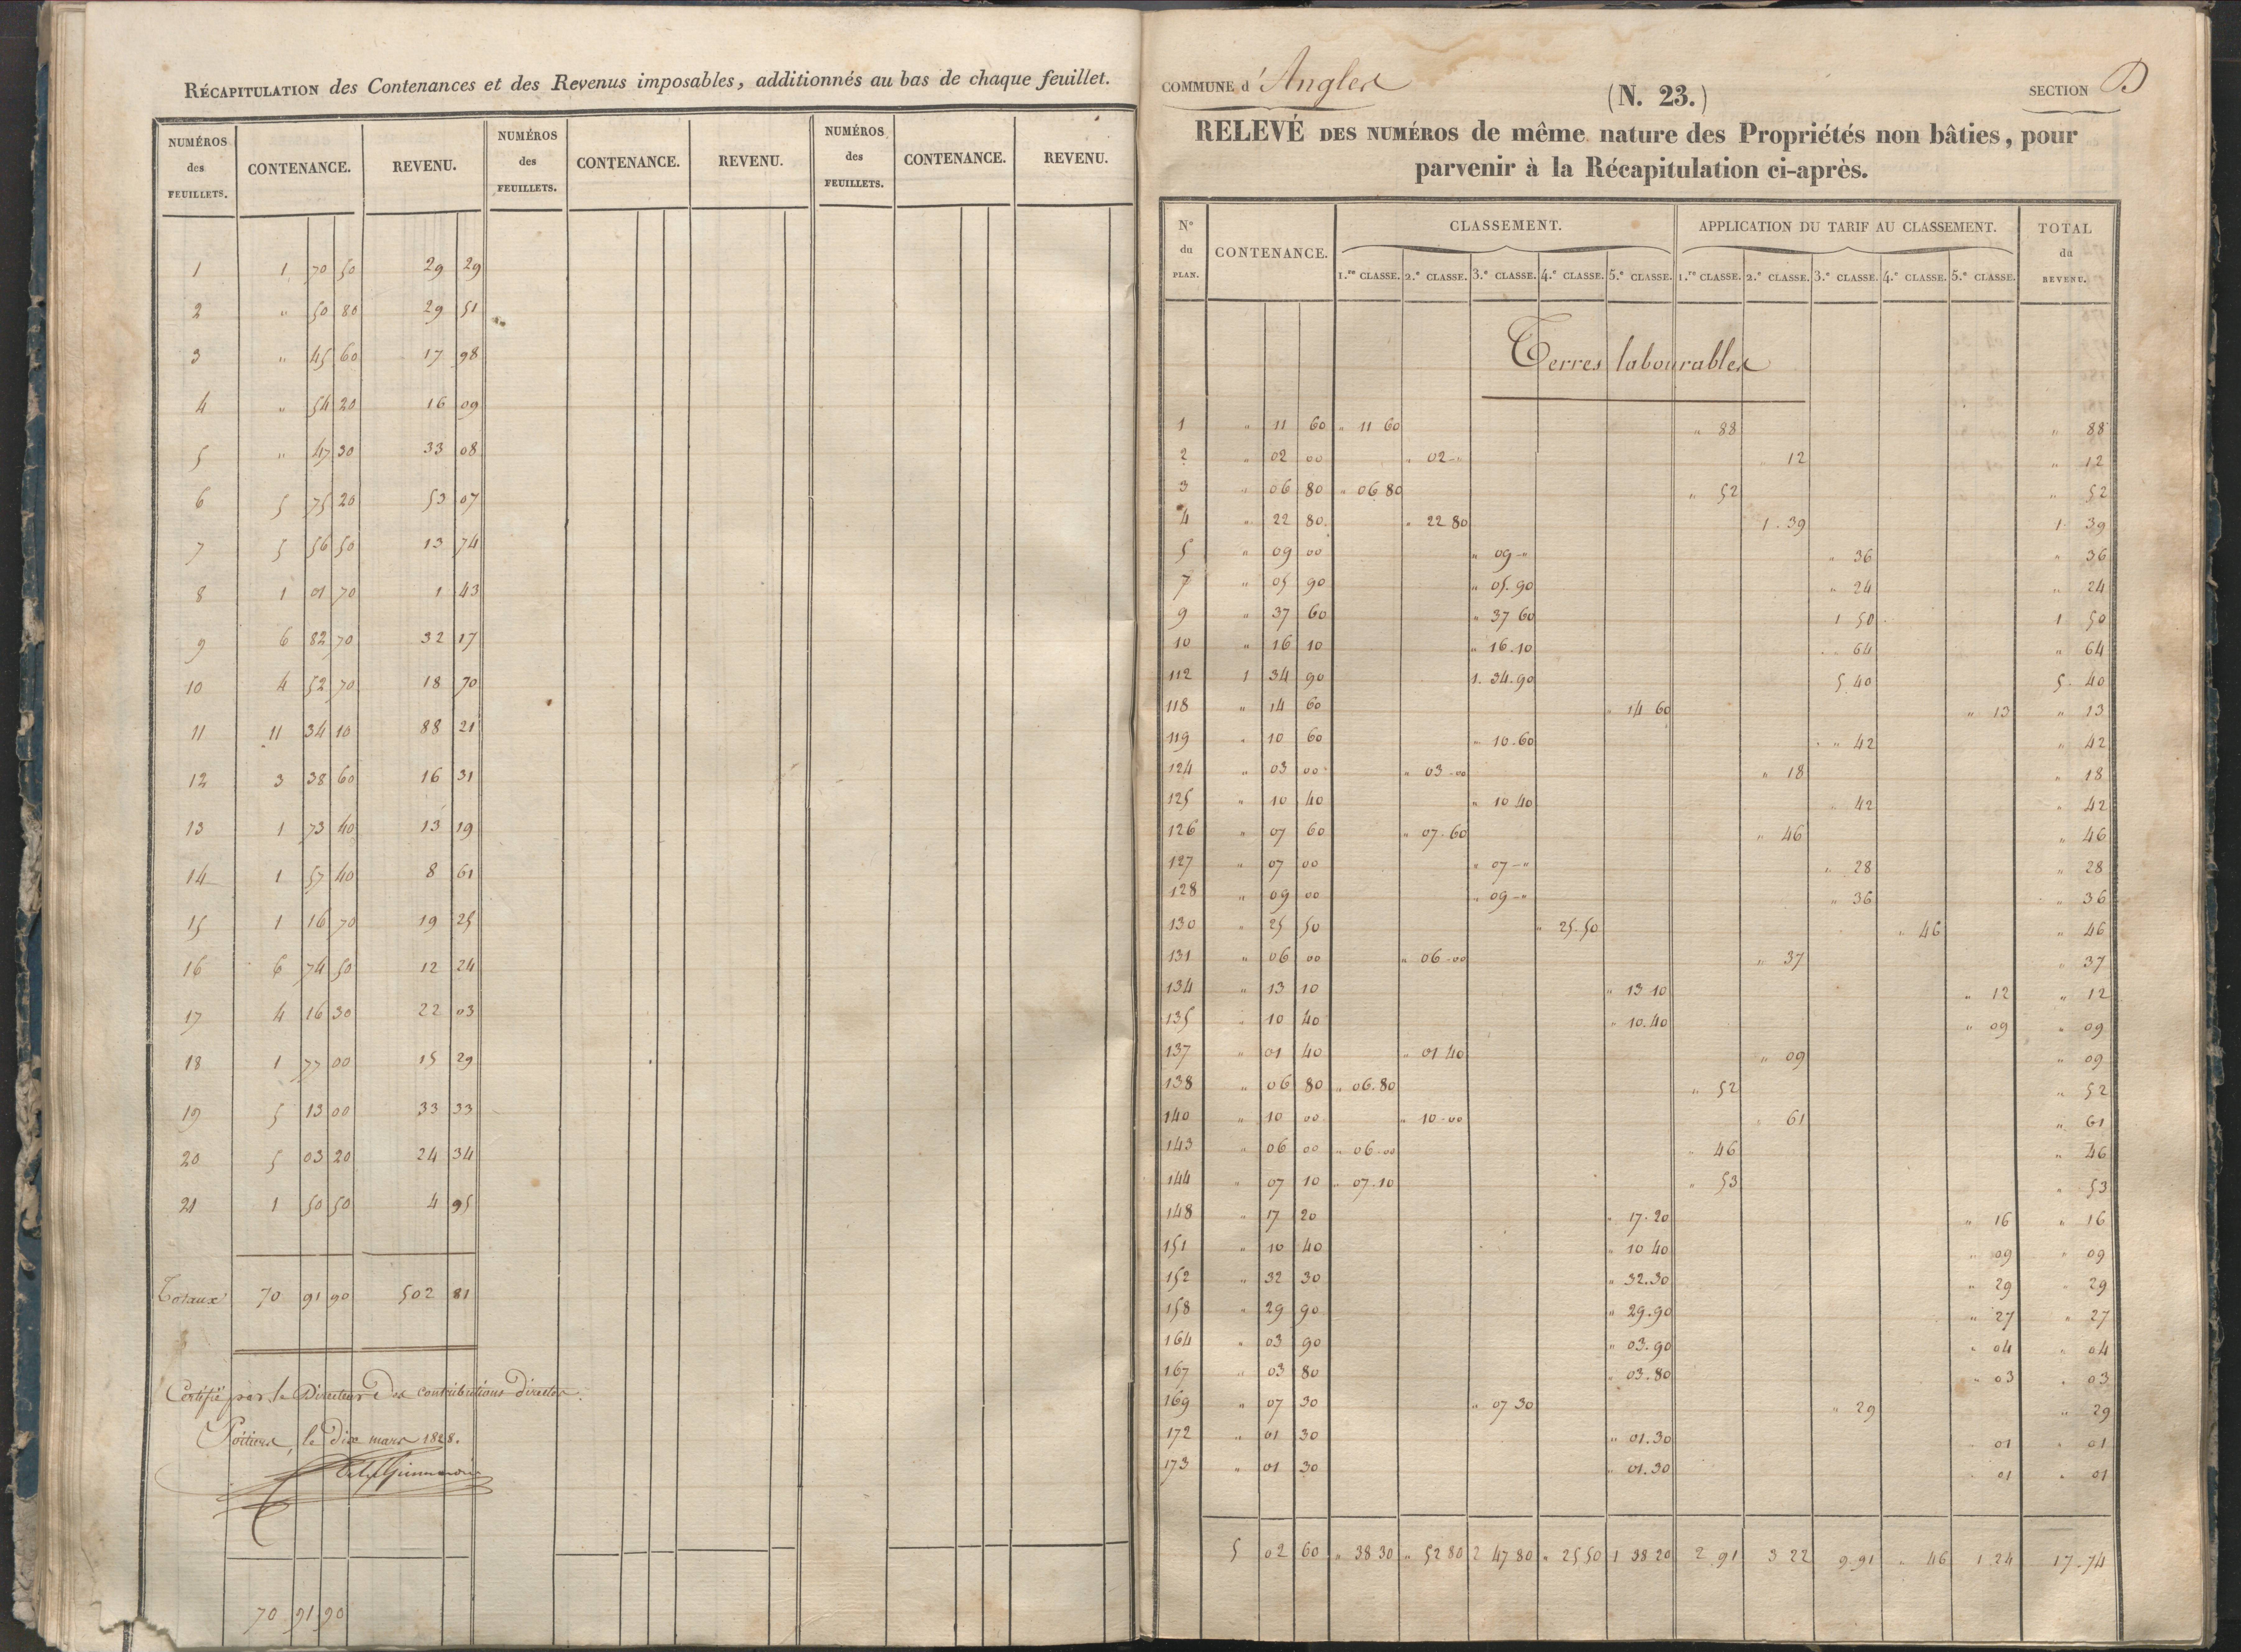 RÉCAPITULATION des Contenances et des Revenus imposables, additionnés au bas de chaque feuillet.
NUMÉROS des FEUILLETS. CONTENANCE. REVENU. NUMÉROS des FEUILLETS. CONTENANCE. REVENU. NUMÉROS des FEUILLETS. CONTENANCE. REVENU.
1 1 70 50 29 29
2 " 50 80 29 51
3 " 45 60 17 98
4 " 54 20 16 09
5 " 47 30 33 08
6 5 75 20 53 07
7 5 56 50 13 74
8 1 01 70 1 43
9 6 82 70 32 17
10 4 52 70 18 70
11 11 34 10 88 21
12 3 38 60 16 31
13 1 73 40 13 19
14 1 57 40 8 61
15 1 16 70 19 25
16 6 74 50 12 24
17 4 16 30 22 03
18 1 77 00 15 29
19 5 13 00 33 33
20 5 03 20 24 34
21 1 50 50 4 95
Totaux 70 91 90 502 81
Certifié par le Directeur des contributions directes.
Poitiers, le dix mars 1828.
70 91 90
COMMUNE d'Angles
(N. 23.)
SECTION D
RELEVÉ DES NUMÉROS de même nature des Propriétés non bâties, pour
parvenir à la Récapitulation ci-après.
N° du PLAN. CONTENANCE. CLASSEMENT. APPLICATION DU TARIF AU CLASSEMENT. TOTAL du REVENU.
1.re CLASSE. 2.e CLASSE. 3.e CLASSE. 4.e CLASSE. 5.e CLASSE. 1.re CLASSE. 2.e CLASSE. 3.e CLASSE. 4.e CLASSE. 5.e CLASSE.
Terres labourables
1 " 11 60 " 11 60 " 88 " 88
2 " 02 00 " 02 - " " 12 " 12
3 " 06 80 " 06 80 " 52 " 52
4 " 22 80 " 22 80 1 . 39 1 39
5 " 09 00 " 09 - " " 36 " 36
7 " 05 90 " 05.90 " 24 " 24
9 " 37 60 " 37 60 1 50 1 50
10 " 16 10 " 16.10 " 64 " 64
112 1 34 90 1. 34.90 5 40 5 40
118 " 14 60 " 14 60 " 13 " 13
119 " 10 60 " 10.60 " 42 " 42
124 " 03 00 " 03 - 00 " 18 " 18
125 " 10 40 " 10 40 " 42 " 42
126 " 07 60 " 07.60 " 46 " 46
127 " 07 00 " 07 - " " 28 " 28
128 " 09 00 " 09 - " " 36 " 36
130 " 25 50 " 25.50 " 46 " 46
131 " 06 00 " 06 - 00 " 37 " 37
134 " 13 10 " 13 10 " 12 " 12
135 " 10 40 " 10.40 " 09 " 09
137 " 01 40 " 01 40 " 09 " 09
138 " 06 80 " 06.80 " 52 " 52
140 " 10 00 " 10 - 00 " 61 " 61
143 " 06 00 " 06 - 00 " 46 " 46
144 " 07 10 " 07.10 " 53 " 53
148 " 17 20 " 17.20 " 16 " 16
151 " 10 40 " 10 40 " 09 " 09
152 " 32 30 " 32.30 " 29 " 29
158 " 29 90 " 29.90 " 27 " 27
164 " 03 90 " 03.90 " 04 " 04
167 " 03 80 " 03.80 " 03 " 03
169 " 07 30 " 07 30 " 29 " 29
172 " 01 30 " 01.30 " 01 " 01
173 " 01 30 " 01.30 " 01 " 01
5 02 60 " 38 30 " 52 80 2 47 80 " 25 50 1 38 20 2 91 3 22 9.91 " 46 1 24 17.74